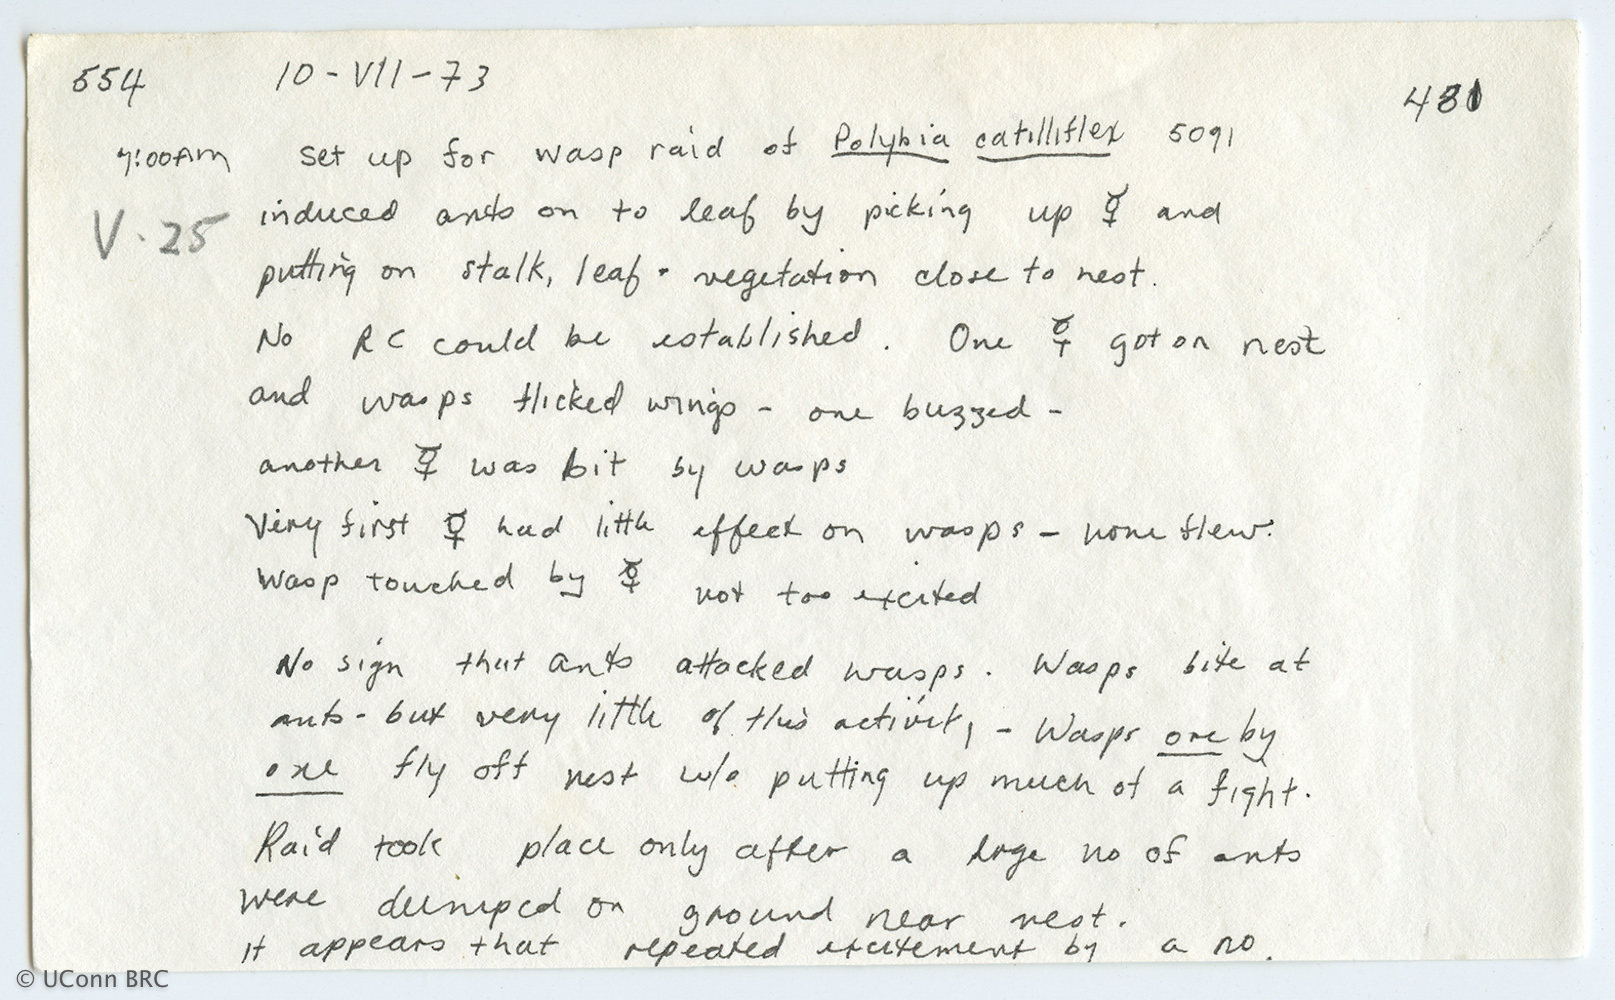 554 10-VII-73 431
7:00AM set up for wasp raid of Polybia catillifex 5091
V. 25 induced ants on to leaf by picking up ☿ and
putting on stalk, leaf · vegetation close to nest.
No RC could be established. One ☿ got on nest
and wasps flicked wings - one buzzed -
another ☿ was bit by wasps
Very first ☿ had little effect on wasps - none flew.
Wasp touched by ☿ not too excited
No sign that ants attacked wasps. Wasps bite at
ants - but very little of this activity - Wasps one by
one fly off nest w/o putting up much of a fight.
Raid took place only after a large no of ants
were dumped on ground near nest.
it appears that repeated excitement by a no.
© UConn BRC